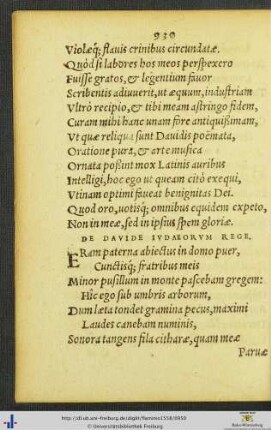 930
Violæq́; flauis crinibus circundatæ.
Quòd si labores hos meos perspexero
Fuisse gratos, & legentium fauor
Scribentis adiuuerit, ut æquum, industriam
Vltrò recipio, & tibi meam astringo fidem,
Curam mihi hanc unam fore antiquißimam,
Vt quæ reliqua sunt Dauidis poëmata,
Oratione pura, & arte musica
Ornata poßint mox Latinis auribus
Intelligi, hoc ego ut queam citò exequi,
Vtinam optimi faueat benignitas Dei.
Quod oro, uotisq́; omnibus equidem expeto,
Non in meæ, sed in ipsius spem gloriæ.
DE DAVIDE IVDAEORVM REGE.
ERam paterna abiectus in domo puer,
Cunctisq́; fratribus meis
Minor pusillum in monte pascebam gregem:
Hîc ego sub umbris arborum,
Dum læta tondet gramina pecus, maximi
Laudes canebam numinis,
Sonora tangens fila citharæ, quam meæ
Paruæ
http://dl.ub.uni-freiburg.de/diglit/flaminio1558/0950
© Universitätsbibliothek Freiburg